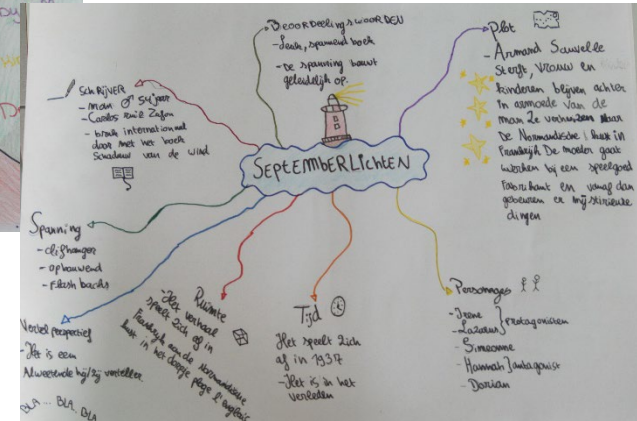 SEPTEMBERLICHTEN
BEOORDELINGSWOORDEN
- Leuk, spannend boek
- De spanning bouwt
geleidelijk op.
Plot
- Armand Sauvelle
sterft, vrouw en
kinderen blijven achter
In armoede van de
man Ze verhuizen naar
De Normandische kust in
Frankrijk De moeder gaat
werken bij een speelgoed
fabrikant en vanaf dan
gebeuren er
dingen
SCHRIJVER
- man ♂ 54 jaar
- Carlos Ruiz Zafon
- brak internationaal
door met het boek
Schaduw van de wind
Spanning
- cliffhanger
- opbouwend
- flash backs
Vertelperspectief
- Het is een
Alwetende hij/zij verteller
BLA... BLA.. BLA
Ruimte
- Het verhaal
speelt zich af in
Frankrijk aan de Normandische
kust in het dorpje
Tijd
Het speelt zich
af in 1937
- Het is in het
verleden
Personages
- Irene
- Lazarus } protagonisten
- Simeonne
- Hannah } antagonist
- Dorian